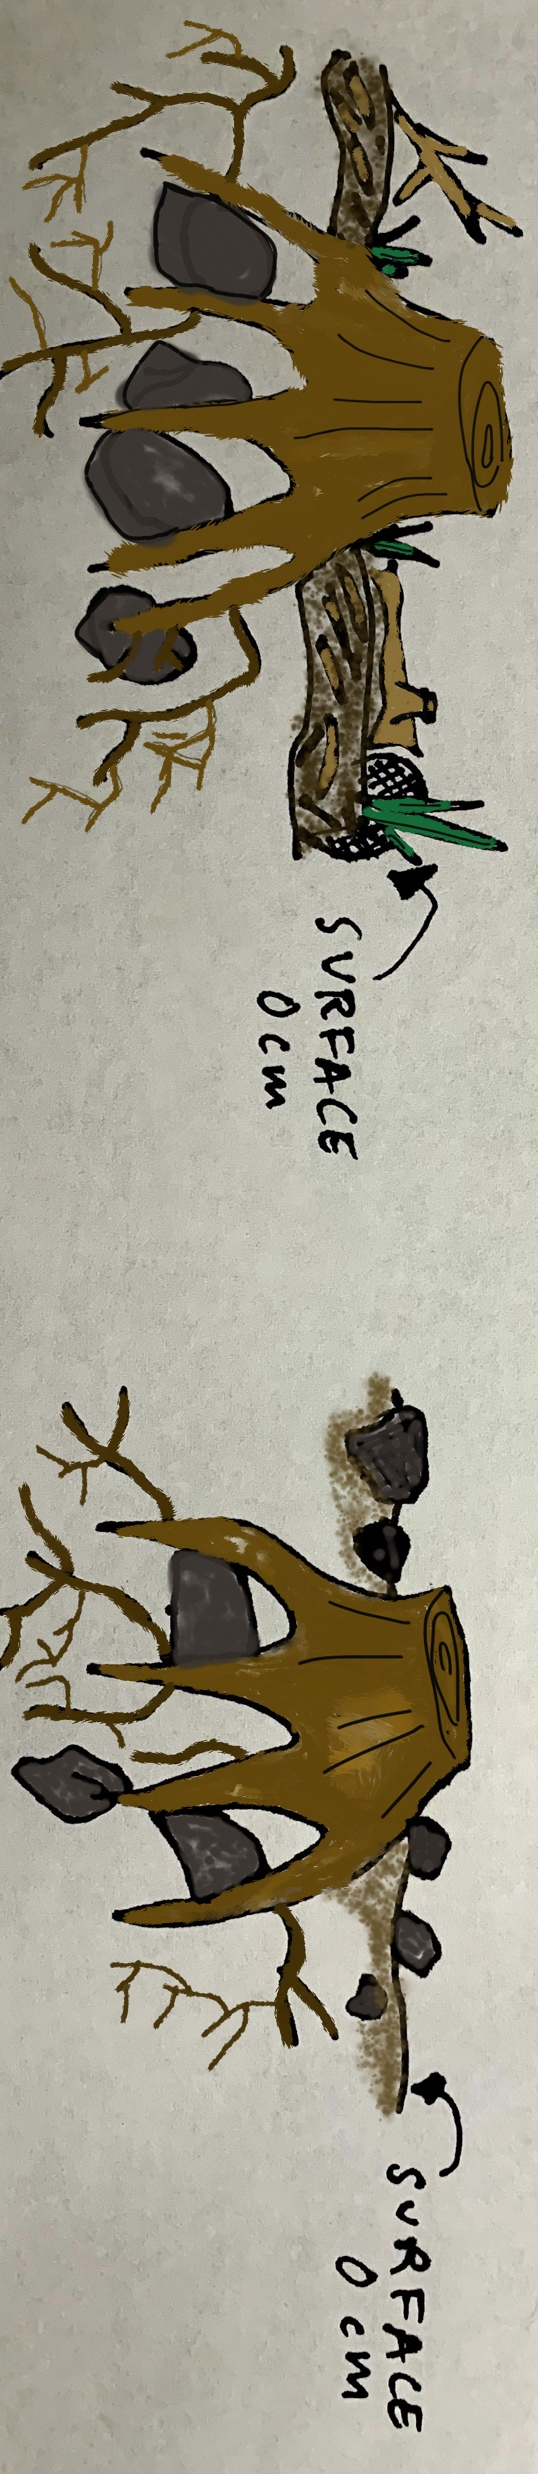 SURFACE
0 cm
SURFACE
0 cm